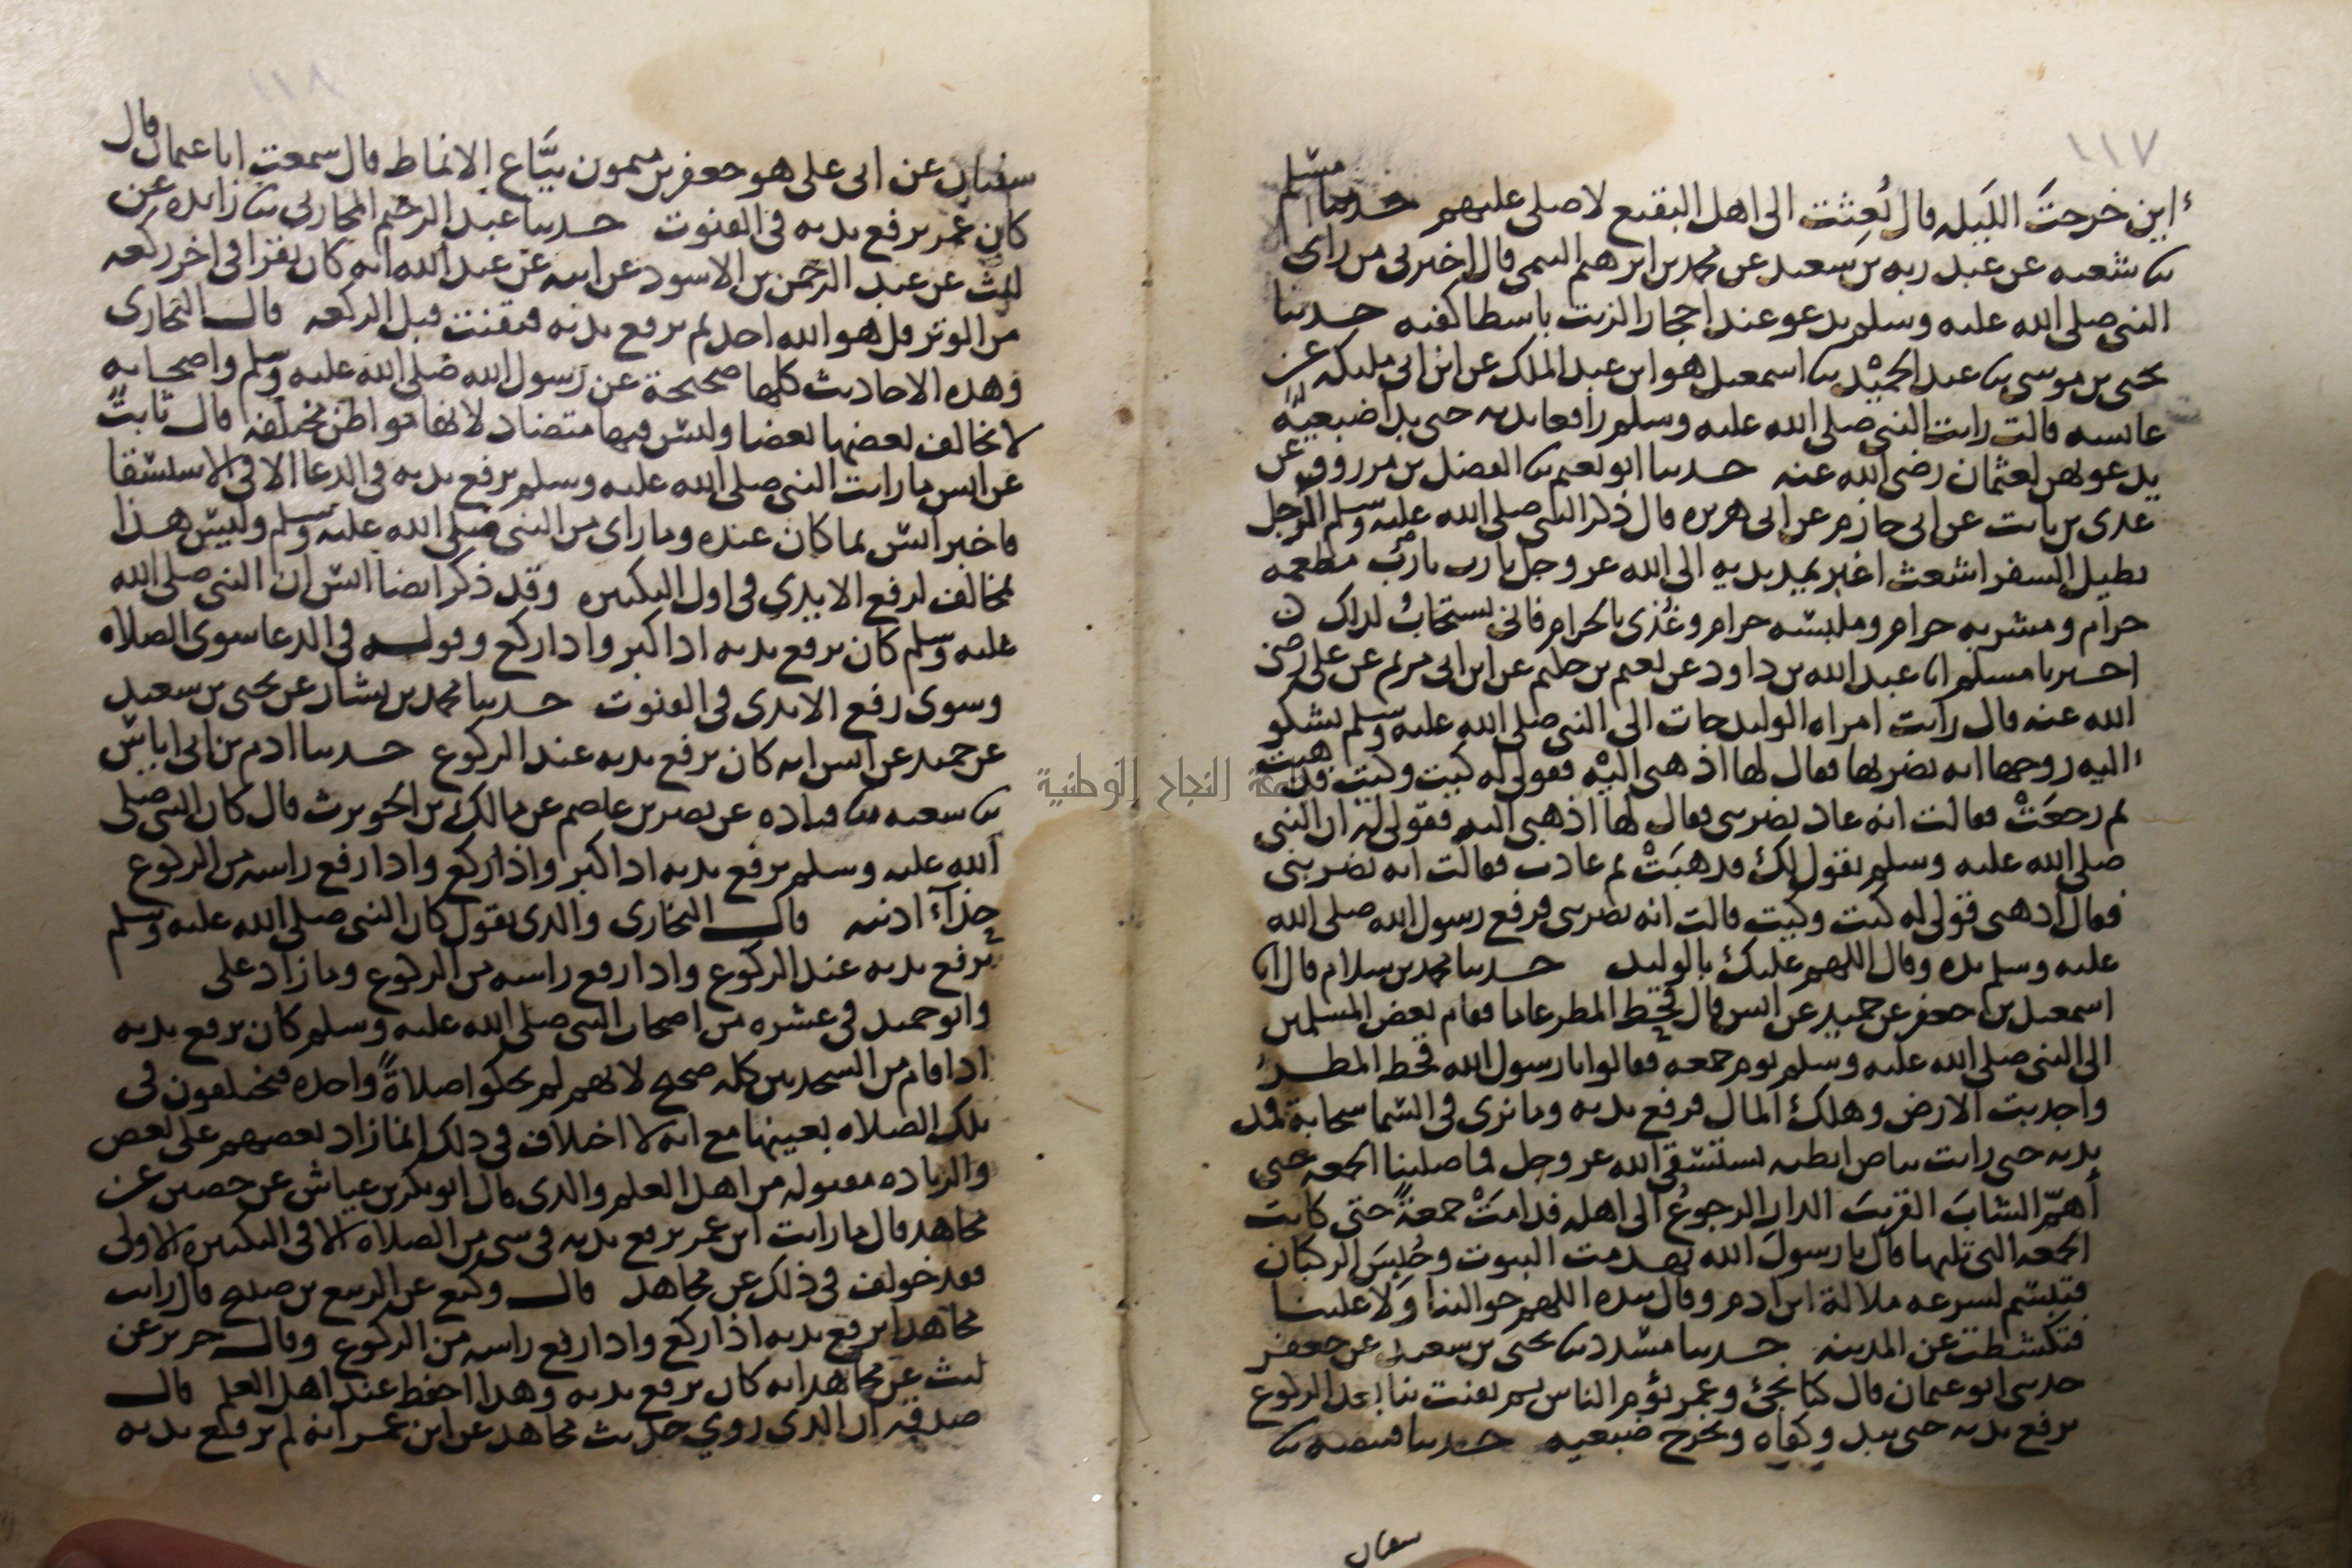 ١١٧
أين خرجتَ الليله قال بُعِثت الى اهل البقيع لاصلى عليهم حدثنا مسلم
ثنا شعبه عن عبد ربه بن سعيد عن محمد بن ابرهيم التيمى قال اخبرنى من راى
النبى صلى الله عليه وسلم يدعو عند احجار الزيت باسطا كفيه حدثنا
يحيى بن موسى ثنا عبد الحميْد ثنا اسمعيل هو ابن عبد الملك عن ابن ابى مليكه عن
عائشه قالت رايت النبى صلى الله عليه وسلم رافعا يديه حتى بدا ضبعيه
يدعو بهن لعثمان رضى الله عنه حدثنا ابو نعيم ثنا الفضل بن مرزوق عن
عدى بن ثابت عن ابى حازم عن ابى هريره قال ذكر النبى صلى الله عليه وسلم الرجل
يطيل السفر اشعث اغبر يمد يديه الى الله عز وجل يارب يارب مطعمه
حرام ومشربه حرام وملبسه حرام وغُذى بالحرام فانى يستجابُ لذلك
اخبرنا مسلم انا عبد الله بن داود عن نعيم بن حكيم عن ابن ابى مريم عن على رضى
الله عنه قال رايت امراه الوليد جات الى النبى صلى الله عليه وسلم تشكو
اليه زوجها انه يضربها فقال لها اذهبى اليْه فقولى له كيت وكيت فذهبت
ثم رجعَتْ فقالت انه عاد يضربنى فقال لها اذهبى اليه فقولى له ان النبى
صلى الله عليه وسلم يقول لك فذهبَتْ ثم عادت فقالت انه يضربنى
فقال اذهبى فقولى له كيت وكيت قالت انه يضربنى فرفع رسول الله صلى الله
عليه وسلم يده وقال اللهم عليك بالوليد حدثنا محمد بن سلام قال انا
اسمعيل بن جعفر عن حميد عن انس قال قحط المطر عاما فقام بعض المسلمين
الى النبى صلى الله عليه وسلم يوم جمعه فقالوا يا رسول الله قحط المطر
واجدبت الارض وهلك المال فرفع يديه وما نرى فى السما سحابة فمد
يديه حتى رايت بياض ابطيه يستسقى الله عز وجل فما صلينا الجمعه حتى
أهمّ الشابَ القريبَ الدار الرجوعُ الى اهله فدامَتْ جمعةً حتى كانت
الجمعه التى تليها قال يا رسولَ الله تهدمت البيوت وحُبِسَ الركبان
فتبسم لسرعه ملالة ابن ادم وقال بيده اللهم حوالينا وَلا علينا
فتكشطت عن المدينه حدثنا مسدد ثنا يحيى بن سعيد عن جعفر
حدثنى ابو عثمان قال كنا نجئ وعمر يؤم الناس ثم يقنت بنا بعد الركوع
يرفع يديه حتى يبدو كفاه ويخرج ضبعيه حدثنا قبيصه ثنا
سفيان
١١٨
سفيان عن ابى على هو جعفر بن ميمون بيَّاع الانماط قال سمعت ابا عثمان قال
كان عُمر يرفع يديه فى القنوت حدثنا عبد الرحيم المحاربى ثنا زايده عن
ليث عن عبد الرحمن بن الاسود عن ابيه عن عبد الله انه كان يقرا فى اخر ركعه
من الوتر قل هو الله احد ثم يرفع يديه فيقنت قبل الركعه قال البخارى
وهذه الاحاديث كلها صحيحة عن رسول الله صلى الله عليه وسلم واصحابه
لا يخالف بعضها بعضا وليس فيها متضاد لانها مواطن مختلفه قال ثابتٌ
عن انس ما رايت النبى صلى الله عليه وسلم يرفع يديه فى الدعا الا فى الاستسقا
فاخبر انس بما كان عنده وما راى من النبى صلى الله عليه وسلم وليس هذا
بمخالف لرفع الايدي فى اول التكبيره وقد ذكر ايضا انس ان النبى صلى الله
عليه وسلم كان يرفع يديه اذا كبر واذا ركع وقوله فى الدعا سوى الصلاه
وسوى رفع الايدى فى القنوت حدثنا محمد بن بشار عن يحيى بن سعيد
عن حميد عن انس انه كان يرفع يديه عند الركوع حدثنا ادم بن ابى اياس
ثنا شعبه ثنا قتاده عن نصر بن عاصم عن مالك بن الحويرث قال كان النبى صلى
الله عليه وسلم يرفع يديه اذا كبر واذا ركع واذا رفع راسه من الركوع
حِذآء اذنيه قال البخارى والذى يقول كان النبى صلى الله عليه وسلم
يَرفع يديه عند الركوع واذا رفع راسه من الركوع وما زاد على
وابو حميد فى عشره من اصحاب النبى صلى الله عليه وسلم كان يرفع يديه
اذا قام من السجدتين كله صحيح لانهم لم يحكوا صلاةً واحده فيختلفون فى
تلك الصلاه بعينها مع انه لا اختلاف فى ذلك انما زاد بعضهم على بعض
والزياده مقبوله من اهل العلم والذى قال ابو بكر بن عياش عن حصين عن
مجاهد قال ما رايت ابن عمر يرفع يديه فى شى من الصلاه الا فى التكبيره الاولى
فقد خولف فى ذلك عن مجاهد قال وكيع عن الربيع بن صبيح قال رايت
مجاهدا يرفع يديه اذا ركع واذا رفع راسه من الركوع وقال جرير عن
ليث عن مجاهد انه كان يرفع يديه وهذا احفظ عند اهل العلم قال
صدقه ان الذى روي حديث مجاهد عن ابن عمر انه لم يرفع يديه
جامعة النجاح الوطنية